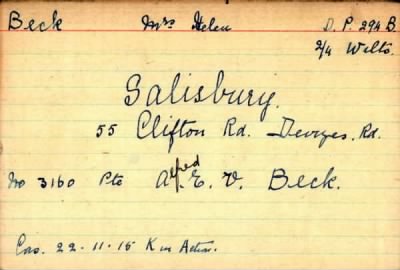 Beck Mrs Helen D.P. 294 B.
2/4 Wilts.
Salisbury.
55 Clifton Rd. Devizes. Rd.
No 3160 Pte Alfred. E. V. Beck.
Cas. 22-11-15 K in Action.